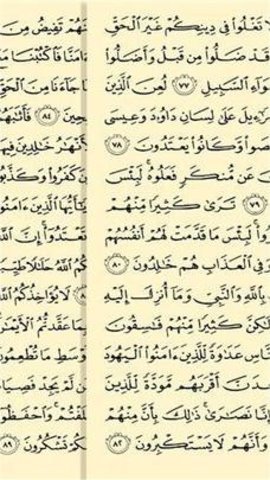 لَا تَغْلُوا۟ فِى دِينِكُمْ غَيْرَ ٱلْحَقِّ
قَدْ ضَلُّوا۟ مِن قَبْلُ وَأَضَلُّوا۟
وَآءِ ٱلسَّبِيلِ ٧٧ لُعِنَ ٱلَّذِينَ
رَٰٓءِيلَ عَلَىٰ لِسَانِ دَاوُۥدَ وَعِيسَى
صَوا۟ وَّكَانُوا۟ يَعْتَدُونَ ٧٨
عَن مُّنكَرٍ فَعَلُوهُ ۚ لَبِئْسَ
٧٩ تَرَىٰ كَثِيرًا مِّنْهُمْ
وا۟ ۚ لَبِئْسَ مَا قَدَّمَتْ لَهُمْ أَنفُسُهُمْ
وَفِى ٱلْعَذَابِ هُمْ خَـٰلِدُونَ ٨٠
بِٱللَّهِ وَٱلنَّبِىِّ وَمَآ أُنزِلَ إِلَيْهِ
لَـٰكِنَّ كَثِيرًا مِّنْهُمْ فَـٰسِقُونَ
نَّاسِ عَدَٰوَةً لِّلَّذِينَ ءَامَنُوا۟ ٱلْيَهُودَ
جِدَنَّ أَقْرَبَهُم مَّوَدَّةً لِّلَّذِينَ
إِنَّا نَصَـٰرَىٰ ۚ ذَٰلِكَ بِأَنَّ مِنْهُمْ
وَأَنَّهُمْ لَا يَسْتَكْبِرُونَ ٨٢
نَهُمْ تَفِيضُ مِنَ
ءَامَنَّا فَٱكْتُبْنَا مَ
مَا جَآءَنَا مِنَ ٱلْحَقِّ
حِينَ ٨٤ فَأَثَـٰبَهُ
أَنْهَـٰرُ خَـٰلِدِينَ فِي
ينَ كَفَرُوا۟ وَكَذَّبُو
يَـٰٓأَيُّهَا ٱلَّذِينَ ءَامَنُوا۟
عْتَدُوٓا۟ ۚ إِنَّ ٱللَّهَ
كُمُ ٱللَّهُ حَلَـٰلًا طَيِّبًا
لَا يُؤَاخِذُكُمُ ٱللَّهُ
مَا عَقَّدتُّمُ ٱلْأَيْمَـٰنَ
وْسَطِ مَا تُطْعِمُونَ
ن لَّمْ يَجِدْ فَصِيَامُ
لَفْتُمْ ۚ وَٱحْفَظُوٓا۟
كُمْ تَشْكُرُونَ ٨٩